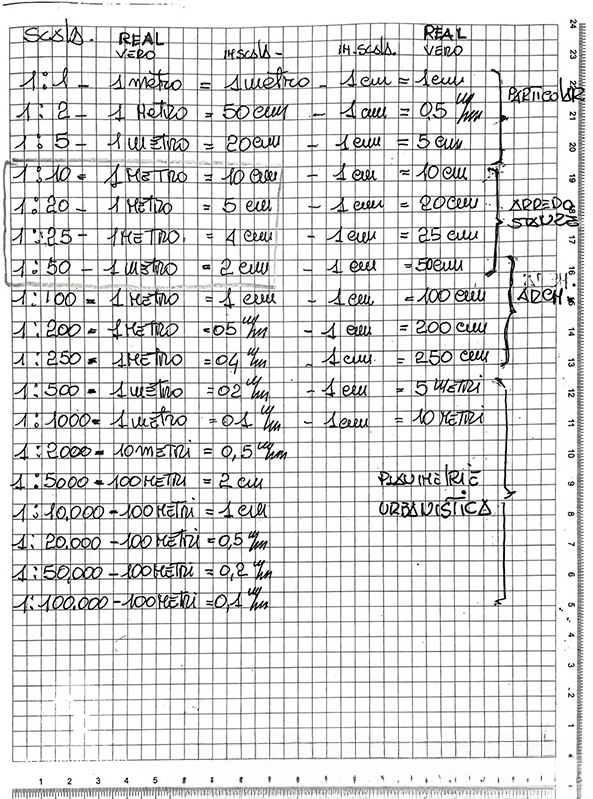 SCALA. REAL VERO IN SCALA - IN.SCALA. REAL VERO
1:1 - 1 metro = 1 metro - 1 cm = 1 cm
1:2 - 1 METRO = 50 cm - 1 cm = 0,5 m/m PARTICOLAR
1:5 - 1 METRO = 20 cm - 1 cm = 5 cm
1:10 = 1 METRO = 10 cm - 1 cm = 10 cm
1:20 - 1 METRO = 5 cm - 1 cm = 20 cm ARREDO
1:25 - 1 METRO. = 4 cm - 1 cm = 25 cm STANZE
1:50 - 1 METRO = 2 cm - 1 cm = 50 cm
1:100 = 1 METRO = 1 cm - 1 cm = 100 cm ARCH
1:200 = 1 METRO = 05 m/m - 1 cm = 200 cm
1:250 = 1 METRO = 04 m/m - 1 cm. = 250 cm
1:500 = 1 METRO = 02 m/m - 1 cm = 5 METRI
1:1000 = 1 METRO = 01 m/m - 1 cm = 10 METRI
1:2000 = 10 METRI = 0,5 m/m
1:5000 - 100 METRI = 2 cm PLANIMETRIE
1:10.000 - 100 METRI = 1 cm URBANISTICA
1:20.000 - 100 METRI = 0,5 m/m
1:50,000 - 100 METRI = 0,2 m/m
1:100.000 - 100 METRI = 0,1 m/m
24
23
22
21
20
19
18
17
16
15
14
13
12
11
10
9
8
7
6
5
4
3
2
1
1 2 3 4 5